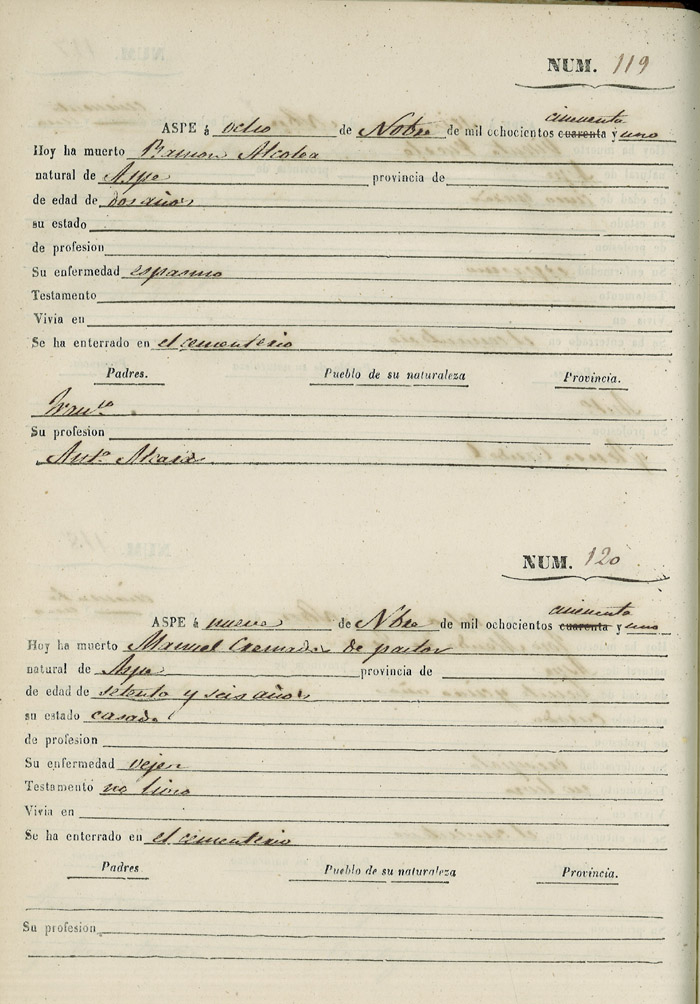 NUM. 119
cincuenta
ASPE á ocho de Nobre de mil ochocientos cuarenta y uno
Hoy ha muerto Ramon Alcolea
natural de Aspe provincia de
de edad de dos años
su estado
de profesion
Su enfermedad espasmo
Testamento
Vivia en
Se ha enterrado en el cementerio
Padres. Pueblo de su naturaleza Provincia.
Su profesion
Antª
NUM. 120
cincuenta
ASPE á nueve de Nbre de mil ochocientos cuarenta y uno
Hoy ha muerto Manuel Cremades de pastor
natural de Aspe provincia de
de edad de setenta y seis años
su estado casado
de profesion
Su enfermedad vejez
Testamento no
Vivia en
Se ha enterrado en el cementerio
Padres Pueblo de su naturaleza Provincia.
Su profesion